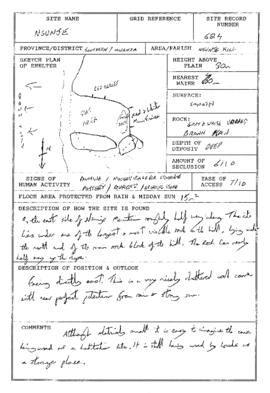 SITE NAME
NSUNJE
GRID REFERENCE
SITE RECORD
NUMBER
684
PROVINCE/DISTRICT SOUTHERN / MWANZA
AREA/PARISH NSUNJE HILL
SKETCH PLAN
OF SHELTER
HEIGHT ABOVE
PLAIN 30m
NEAREST
WATER
SURFACE:
SMOOTH
ROCK:
BROWN
DEPTH OF
DEPOSIT DEEP
AMOUNT OF
SECLUSION 6/10
SIGNS OF
HUMAN ACTIVITY
EASE OF
ACCESS 7/10
FLOOR AREA PROTECTED FROM RAIN & MIDDAY SUN 15m2
DESCRIPTION OF HOW THE SITE IS FOUND
On the east side of Nsunje Mountain roughly half way along. The site
lies under one of the largest & most visible rocks on the hill, lying under
the north end of the main rock block of the hill. The rock lies nearly
half way up the slope.
DESCRIPTION OF POSITION & OUTLOOK
Facing directly east. This is a very nicely sheltered small cave
with near perfect protection from rain or strong sun.
COMMENTS Although relatively small it is easy to imagine the cave
being used as a habitation site. It is still being used by locals as
a storage place.